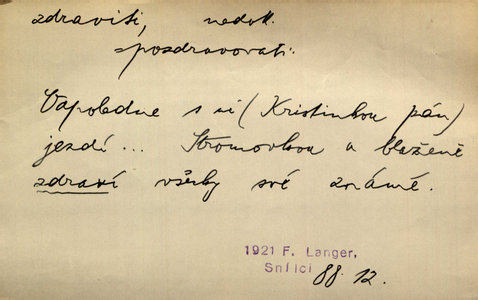 zdraviti, nedok.
pozdravovati.
Odpoledne s ní (Kristinkou pán)
jezdí... Stromovkou a blaženě
zdraví všecky své známé.
1921 F. Langer,
Snílci 88.12.